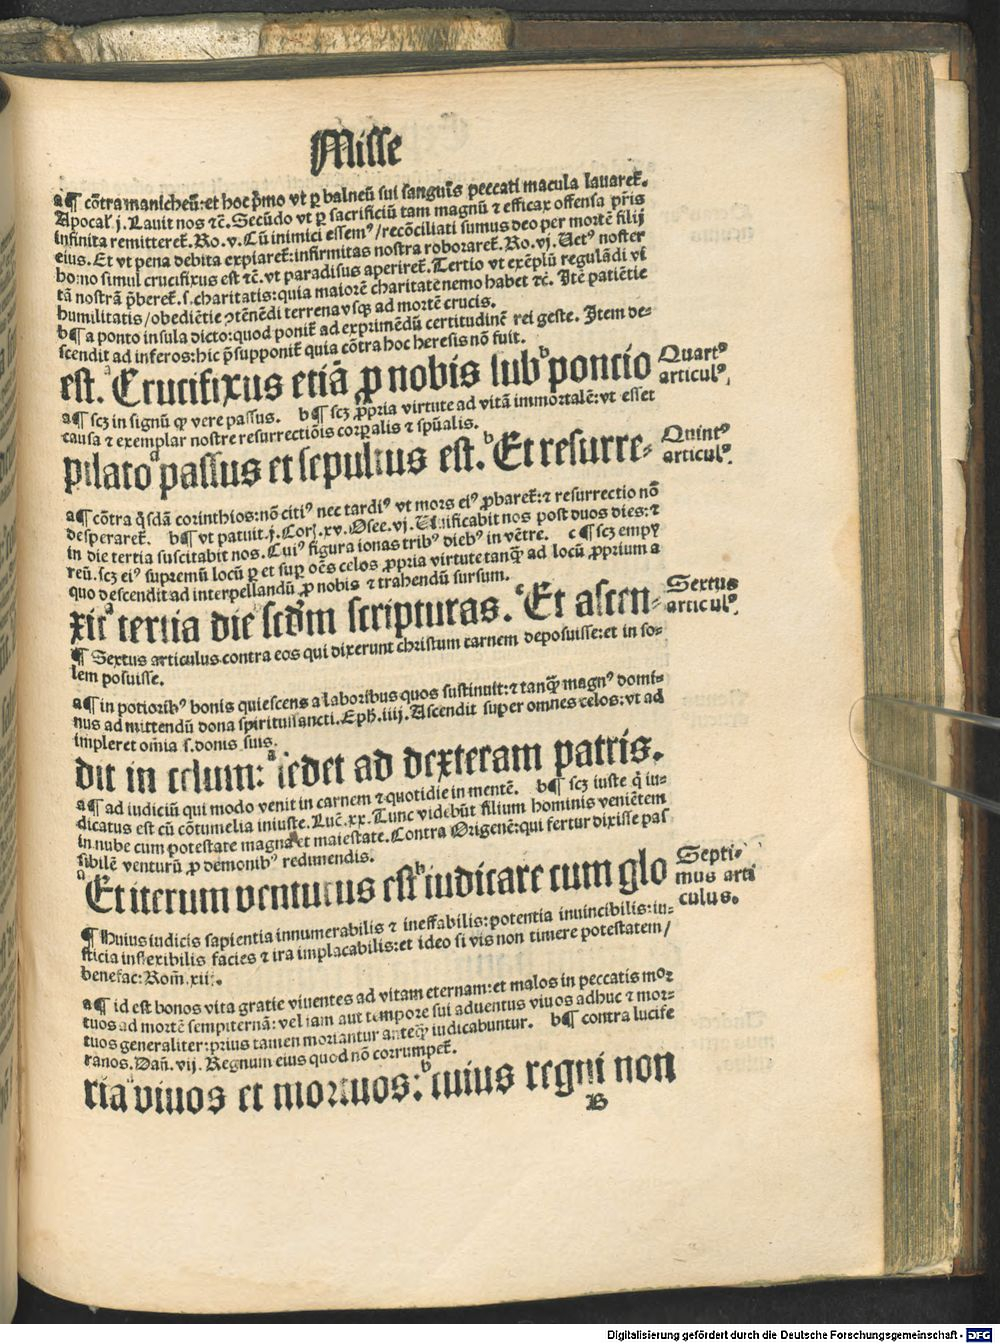 Misse
a¶ cōtra manicheū: et hoc p̄mo vt ꝑ balneū sui sanguīs peccati macula lauaret᷑.
Apocal̕ j. Lauit nos ⁊c̄. Secūdo vt ꝑ sacrificiū tam magnū ⁊ efficax offensa pr̄is
infinita remitteret᷑. Ro. v. Cū inimici essemꝰ / recōciliati sumus deo per mortē filij
eius. Et vt pena debita expiaret᷑: infirmitas nostra roboraret᷑. Ro. vj. Uetꝰ noster
homo simul crucifixus est ⁊c̄. vt paradisus aperiret᷑. Tertio vt exēplū regulādi vi
tā nostrā p̄beret᷑. s. charitatis: quia maiorē charitatē nemo habet ⁊c̄. Itē patiētie
humilitatis / obediētie ꝯtēnēdi terrena vsqꝫ ad mortē crucis.
b¶ a ponto insula dicto: quod ponit᷑ ad exprimēdū certitudinē rei geste. Item de-
scendit ad inferos: hic p̄supponit᷑ quia cōtra hoc heresis nō fuit.
est. ᵃCrucifixus etiā ꝓ nobis sub ᵇponcio
Quartꝰ
articulꝰ.
a¶ scꝫ in signū ꝙ vere passus. b¶ scꝫ ꝓpria virtute ad vitā immortalē: vt esset
causa ⁊ exemplar nostre resurrectiōis corꝑalis ⁊ spūalis.
pilato ᵃpassus et sepultus est. ᵇEt resurre-
Quintꝰ
articulꝰ.
a¶ cōtra q̄sdā corinthios: nō citiꝰ nec tardiꝰ vt mors eiꝰ ꝓbaret᷑: ⁊ resurrectio nō
desperaret᷑. b¶ vt patuit. j. Cor. xv. Osee. vj. Uiuificabit nos post duos dies: ⁊
in die tertia suscitabit nos. Cuiꝰ figura ionas tribꝰ diebꝰ in vētre. c¶ scꝫ empy
reū. scꝫ eiꝰ supremū locū ꝑ et sup̄ oēs celos ꝓpria virtute tanqꝫ ad locū ꝓprium a
quo descendit ad interpellandū ꝓ nobis ⁊ trahendū sursum.
xit ᵃtertia die ᵇscd̄m scripturas. ᶜEt ascen-
Sextus
articulꝰ.
¶ Sextus articulus contra eos qui dixerunt christum carnem deposuisse: et in so-
lem posuisse.
a¶ in potioribꝰ bonis quiescens a laboribus quos sustinuit: ⁊ tanqꝫ magnꝰ domi-
nus ad mittendū dona spiritussancti. Eph. iiij. Ascendit super omnes celos: vt ad
impleret om̄ia s. donis suis.
dit in celum: ᵃsedet ad dexteram patris.
a¶ ad iudiciū qui modo venit in carnem ⁊ quotidie in mentē. b¶ scꝫ iuste q̄ iu-
dicatus est cū cōtumelia iniuste. Luc̄. xx. Tunc videbūt filium hominis veniētem
in nube cum potestate magna et maiestate. Contra Origenē: qui fertur dixisse pas
sibilē venturū ꝓ demonibꝰ redimendis.
ᵃEt iterum venturus est ᵇiudicare cum glo
Septi-
mus arti
culus.
¶ Huius iudicis sapientia innumerabilis ⁊ ineffabilis: potentia inuincibilis: iu-
sticia inflexibilis facies ⁊ ira implacabilis: et ideo si vis non timere potestatem /
benefac: Rom̄. xiij.
a¶ id est bonos vita gratie viuentes ad vitam eternam: et malos in peccatis mor
tuos ad mortē sempiternā: vel iam aut tempore sui aduentus viuos adhuc ⁊ mor-
tuos generaliter: prius tamen moriantur anteqꝫ iudicabuntur. b¶ contra lucife
ranos. Dan̄. vij. Regnum eius quod nō corrumpet᷑.
ria ᵃviuos et mortuos: ᵇcuius regni non
B
Digitalisierung gefördert durch die Deutsche Forschungsgemeinschaft - DFG